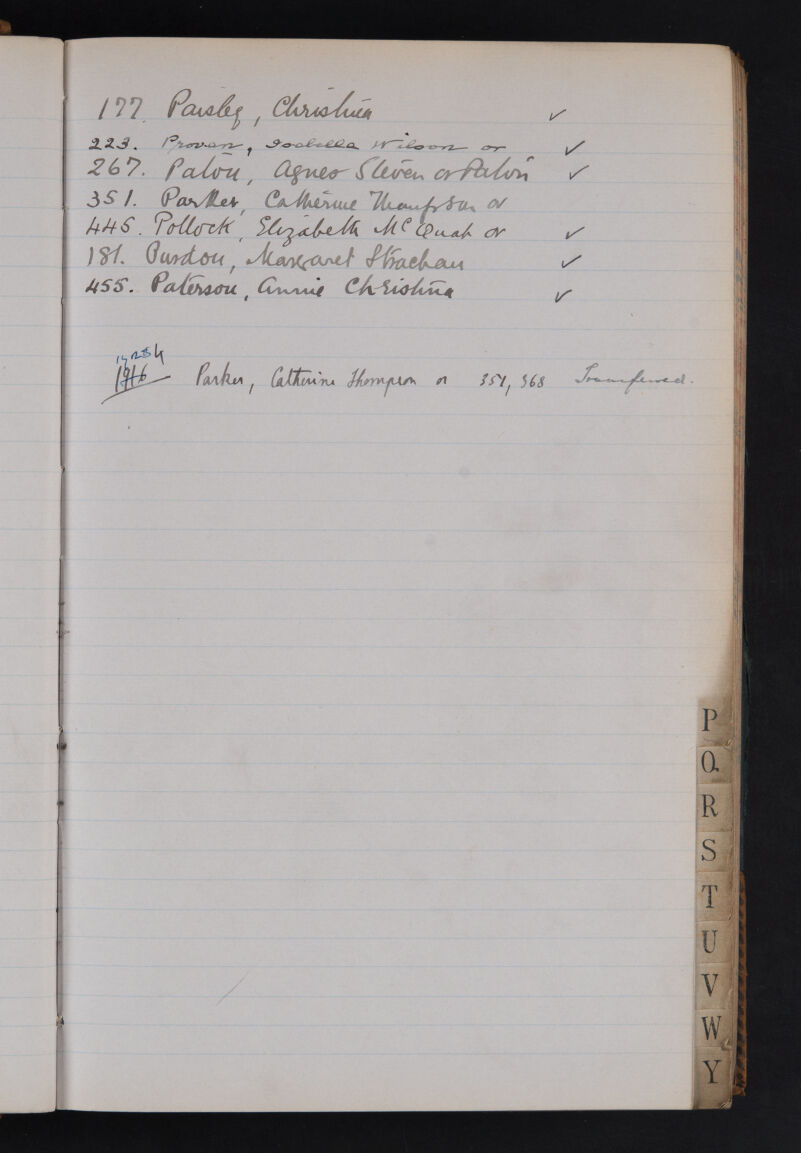 177. Paisley, Christina ✓
223. Provan, Isabella Wilson or ✓
267. Paton, Agnes Steven or Paton ✓
351. Parker, Catherine Thompson or
445. Pollock, Elizabeth McQuat or ✓
181. Purdon, Margaret Strachan ✓
455. Paterson, Annie Christina ✓
1916 Parker, Catherine Thompson or 351, 368 Transferred.
P
Q.
R
S
T
U
V
W
Y